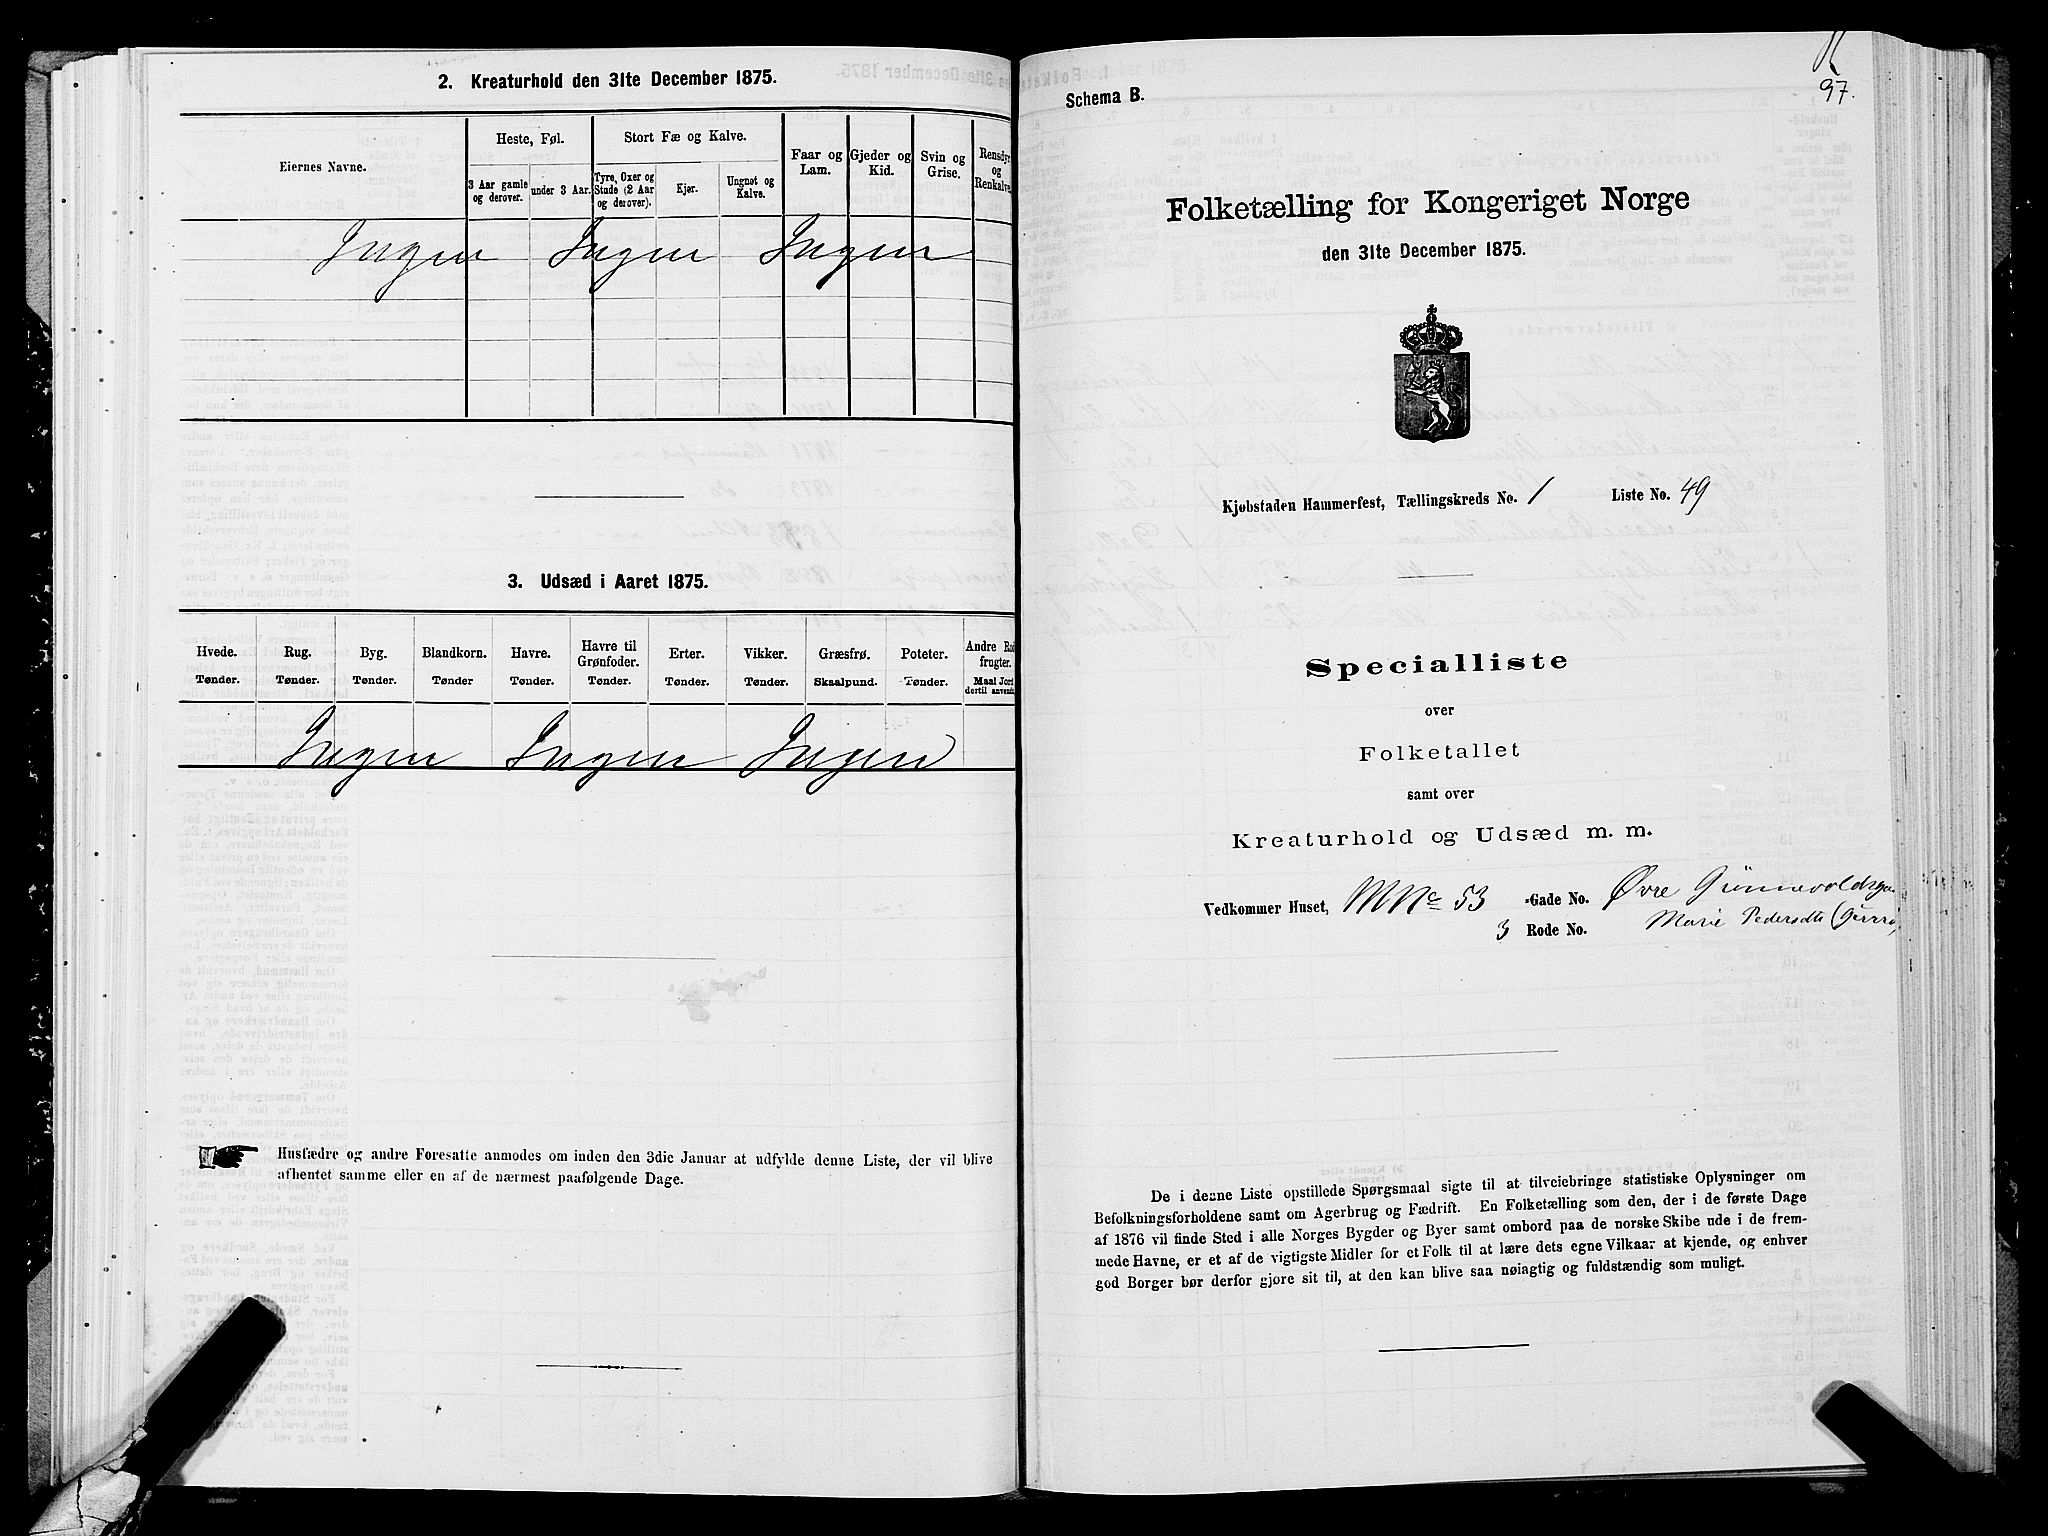 2. Kreaturhold den 31te December 1875.
Eiernes Navne.
Heste, Føl.
Stort Fæ og Kalve.
Faar og Lam.
Gjeder og Kid.
Svin og Grise.
Rensdyr og Renkalve.
3 Aar gamle og derover.
under 3 Aar.
Tyre, Oxer og Stude (2 Aar og derover).
Kjør.
Ungnøt og Kalve.
Ingen Ingen Ingen
3. Udsæd i Aaret 1875.
Hvede. Rug. Byg. Blandkorn. Havre. Havre til Grønfoder. Erter. Vikker. Græsfrø. Poteter. Andre Rodfrugter.
Tønder. Tønder. Tønder. Tønder Tønder. Tønder. Tønder. Tønder. Skaalpund. Tønder. Maal Jord dertil anvendt
Ingen Ingen Ingen
Husfædre og andre Foresatte anmodes om inden den 3die Januar at udfylde denne Liste, der vil blive
afhentet samme eller en af de nærmest paafølgende Dage.
97.
Schema B.
Folketælling for Kongeriget Norge
den 31te December 1875.
Kjøbstaden Hammerfest, Tællingskreds No. 1 Liste No. 49
Specialliste
over
Folketallet
samt over
Kreaturhold og Udsæd m. m.
Vedkommer Huset, MNo 53 -Gade No. Øvre Grønnevoldsga
3 Rode No. Marie Pedersdtr
De i denne Liste opstillede Spørgsmaal sigte til at tilveiebringe statistiske Oplysninger om
Befolkningsforholdene samt om Agerbrug og Fædrift. En Folketælling som den, der i de første Dage
af 1876 vil finde Sted i alle Norges Bygder og Byer samt ombord paa de norske Skibe ude i de frem-
mede Havne, er et af de vigtigste Midler for et Folk til at lære dets egne Vilkaar at kjende, og enhver
god Borger bør derfor gjøre sit til, at den kan blive saa nøiagtig og fuldstændig som muligt.